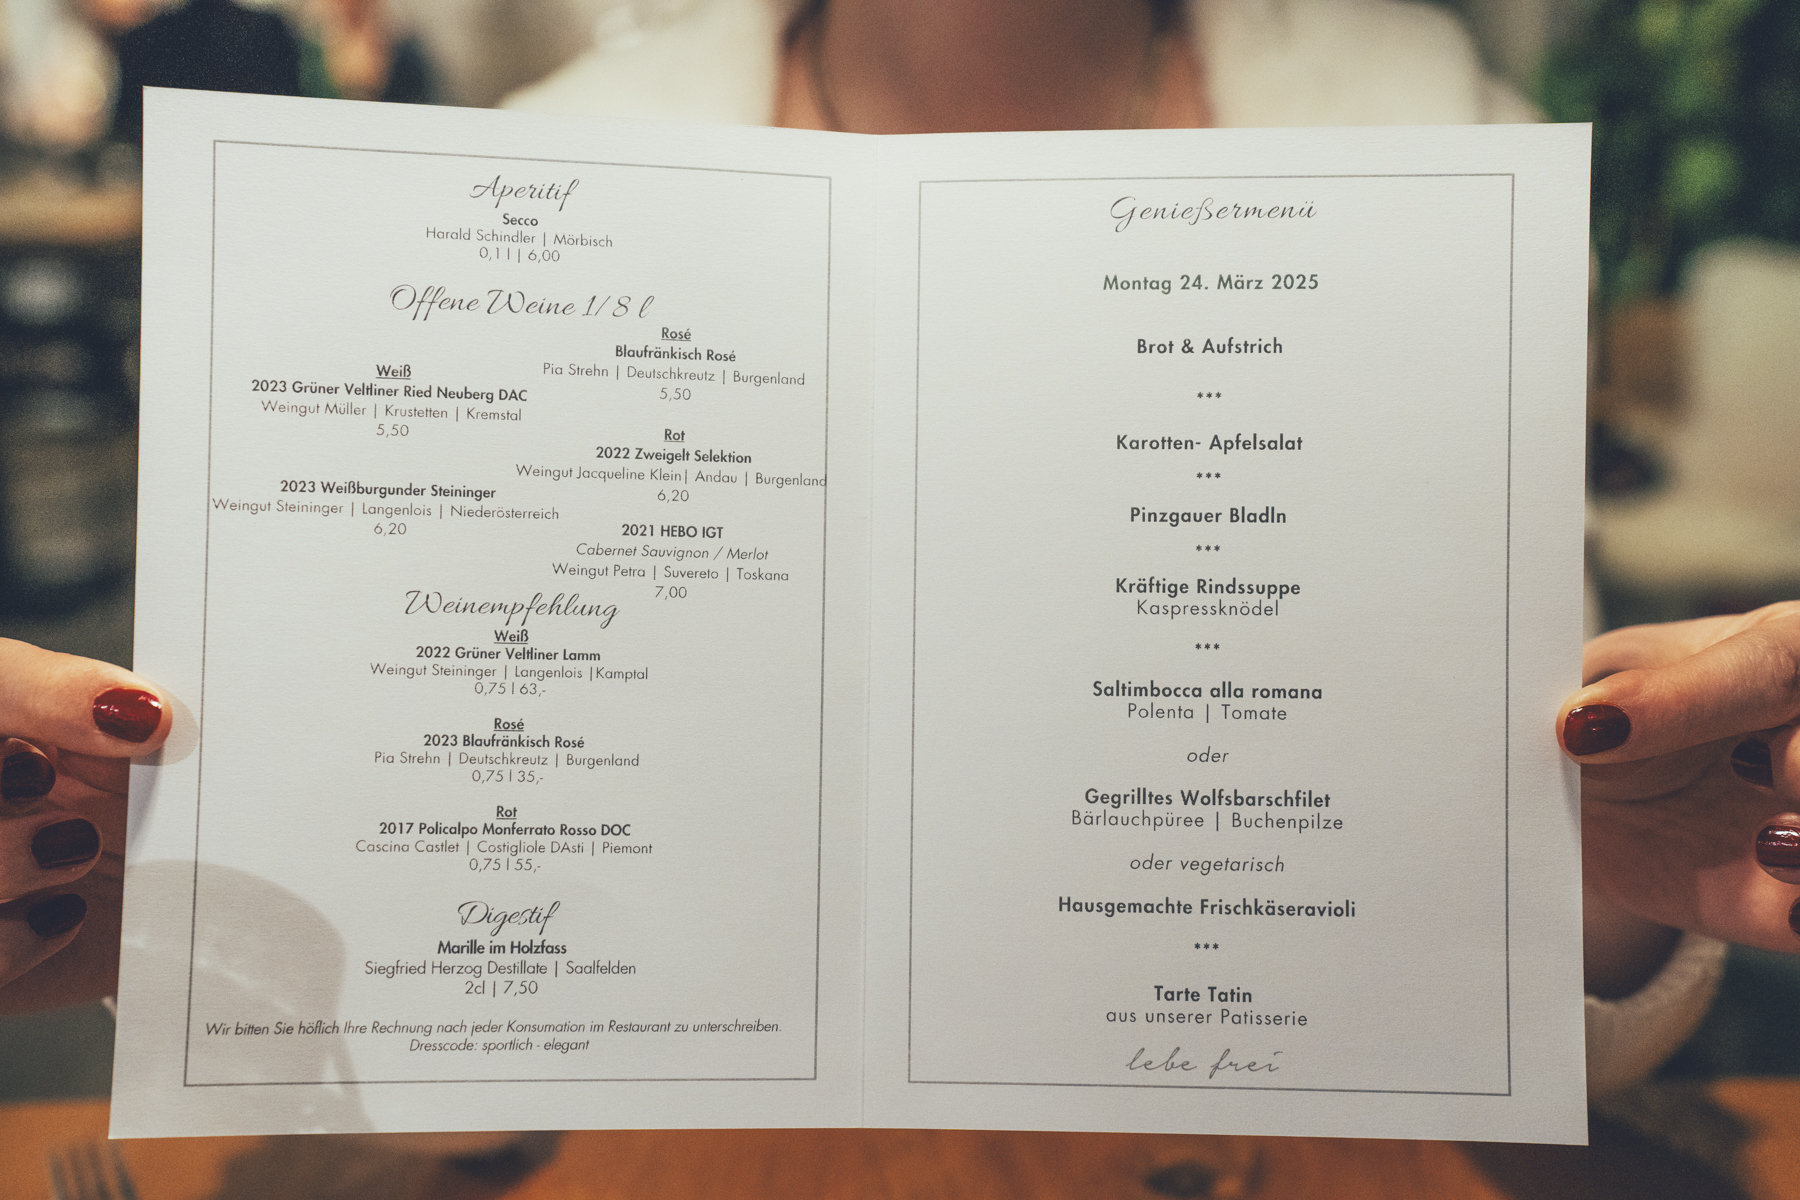 Aperitif
Secco
Harald Schindler | Mörbisch
0,1 l | 6,00
Offene Weine 1/8 l
Weiß
2023 Grüner Veltliner Ried Neuberg DAC
Weingut Müller | Krustetten | Kremstal
5,50
2023 Weißburgunder Steininger
Weingut Steininger | Langenlois | Niederösterreich
6,20
Rosé
Blaufränkisch Rosé
Pia Strehn | Deutschkreutz | Burgenland
5,50
Rot
2022 Zweigelt Selektion
Weingut Jacqueline Klein| Andau | Burgenland
6,20
2021 HEBO IGT
Cabernet Sauvignon / Merlot
Weingut Petra | Suvereto | Toskana
7,00
Weinempfehlung
Weiß
2022 Grüner Veltliner Lamm
Weingut Steininger | Langenlois |Kamptal
0,75 l 63,-
Rosé
2023 Blaufränkisch Rosé
Pia Strehn | Deutschkreutz | Burgenland
0,75 l 35,-
Rot
2017 Policalpo Monferrato Rosso DOC
Cascina Castlet | Costigliole DAsti | Piemont
0,75 l 55,-
Digestif
Marille im Holzfass
Siegfried Herzog Destillate | Saalfelden
2cl | 7,50
Wir bitten Sie höflich Ihre Rechnung nach jeder Konsumation im Restaurant zu unterschreiben.
Dresscode: sportlich - elegant
Genießermenü
Montag 24. März 2025
Brot & Aufstrich
***
Karotten- Apfelsalat
***
Pinzgauer Bladln
***
Kräftige Rindssuppe
Kaspressknödel
***
Saltimbocca alla romana
Polenta | Tomate
oder
Gegrilltes Wolfsbarschfilet
Bärlauchpüree | Buchenpilze
oder vegetarisch
Hausgemachte Frischkäseravioli
***
Tarte Tatin
aus unserer Patisserie
lebe frei